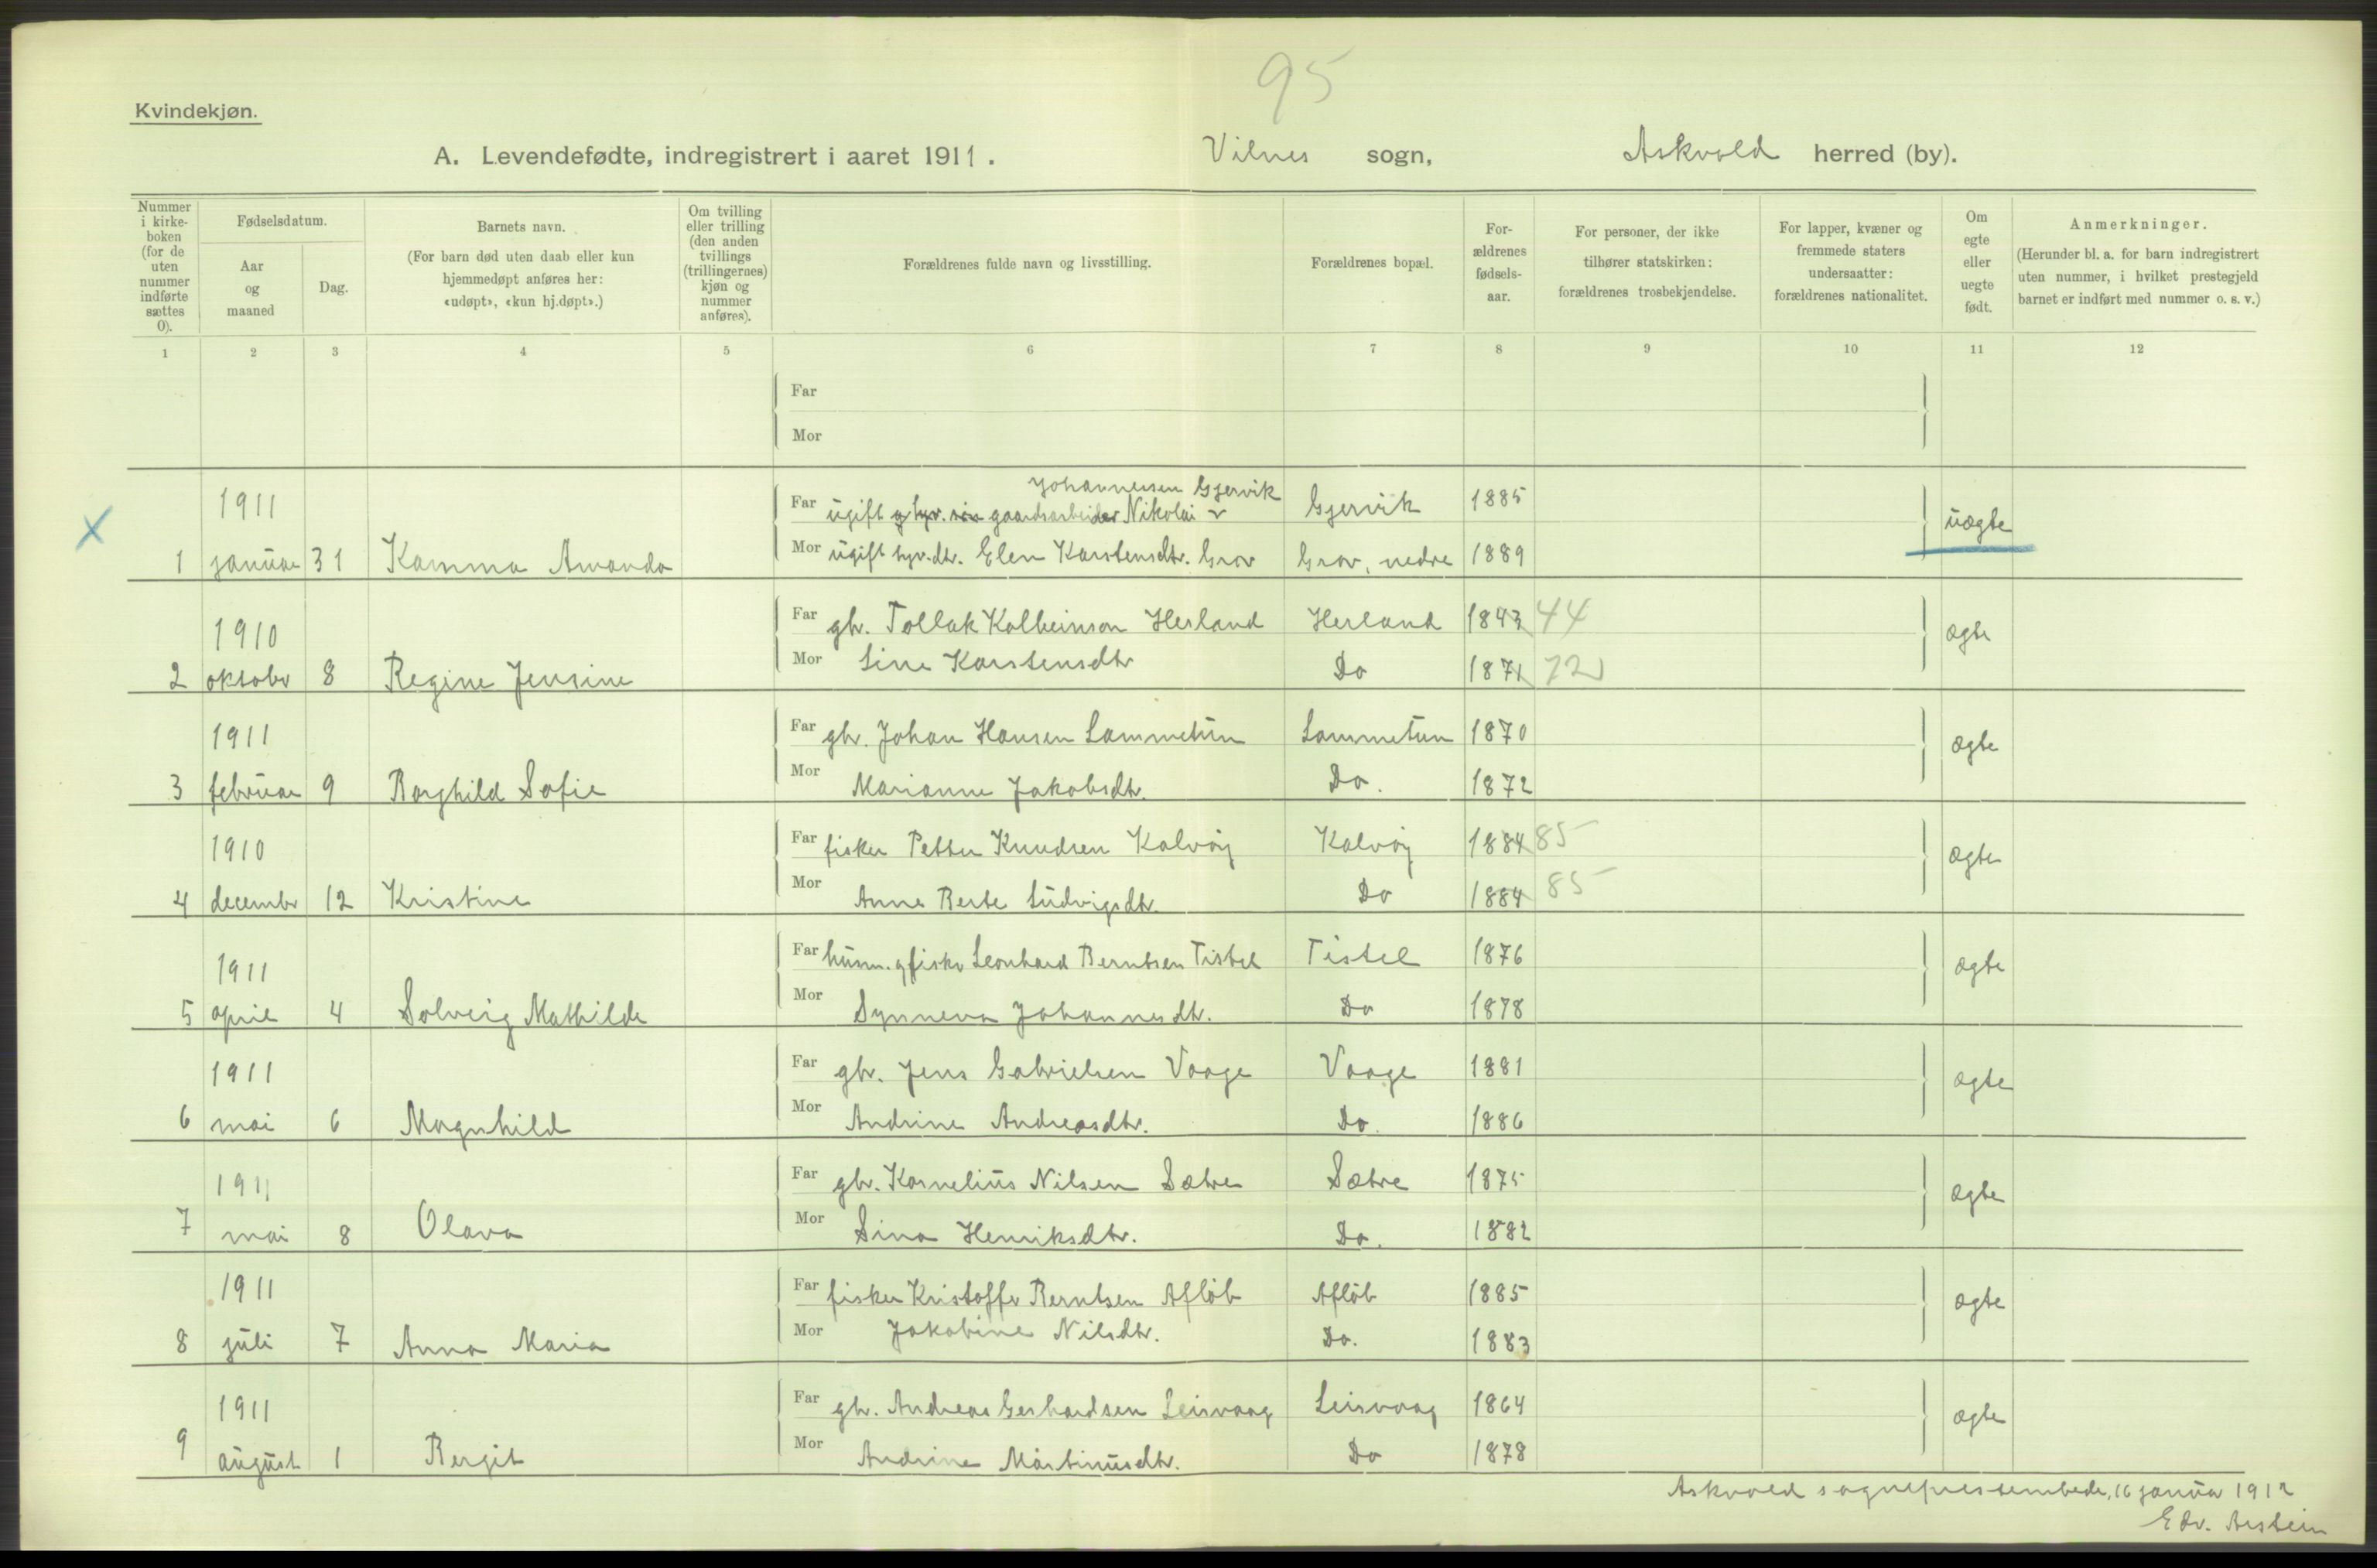 95
Kvindekjøn.
A. Levendefødte, indregistrert i aaret 1911. Vilnes sogn, Askvold herred (by).
Nummer i kirke-boken (for de uten nummer indførte sættes 0).
Fødselsdatum.
Aar og maaned
Dag.
Barnets navn.
(For barn død uten daab eller kun hjemmedøpt anføres her: «udøpt», «kun hj.døpt».)
Om tvilling eller trilling (den anden tvillings (trillingernes) kjøn og nummer anføres).
Forældrenes fulde navn og livsstilling.
Forældrenes bopæl.
For-ældrenes fødsels-aar.
For personer, der ikke tilhører statskirken: forældrenes trosbekjendelse.
For lapper, kvæner og fremmede staters undersaatter: forældrenes nationalitet.
Om egte eller uegte født.
Anmerkninger.
(Herunder bl. a. for barn indregistrert uten nummer, i hvilket prestegjeld barnet er indført med nummer o. s. v.)
1 2 3 4 5 6 7 8 9 10 11 12
Far
Mor
Johannessen Gjervik
1911 Far ugift gaardsarbeider Nikolai Gjervik 1885 uægte
X
1 januar 31 Kamma Amanda Mor ugift tyv.dtr. Elen Karstensdtr. Grov Grov, nedre 1889
1910 Far gbr. Tollak Kolbeinson Herland Herland 1843 44 ægte
2 oktobr 8 Regine Jensine Mor Line Karstensdtr Do 1871 72
1911 Far gbr. Johan Hansen Lammetun Lammetun 1870 ægte
3 februar 9 Borghild Sofie Mor Marianne Jakobsdtr. Do. 1872
1910 Far fisker Petter Knudsen Kalvøy Kalvøy 1884 85 ægte
4 decembr 12 Kristine Mor Anne Berte Ludvigsdtr. Do 1884 85
1911 Far husm. og fisker Leonhard Berntsen Tistel Tistel 1876 ægte
5 april 4 Solveig Mathilde Mor Synneva Johannesdtr. Do 1878
1911 Far gbr. Jens Gabrielsen Vaage Vaage 1881 ægte
6 mai 6 Magnhild Mor Andrine Andreasdtr. Do. 1886
1911 Far gbr. Kornelius Nilsen Sætre Sætre 1875 ægte
7 mai 8 Olava Mor Sina Henriksdtr. Do. 1882
1911 Far fisker Kristoffer Berntsen Afløb Afløb 1885 ægte
8 juli 7 Anna Maria Mor Jakobine Nilsdtr. Do. 1883
1911 Far gbr. Andreas Gerhardsen Leirvaag Leirvaag 1864 ægte
9 august 1 Bergit Mor Andrine Martinusdtr. Do 1878
Askvold sogneprestembede, 16 januar 1912
Edv. Arstein